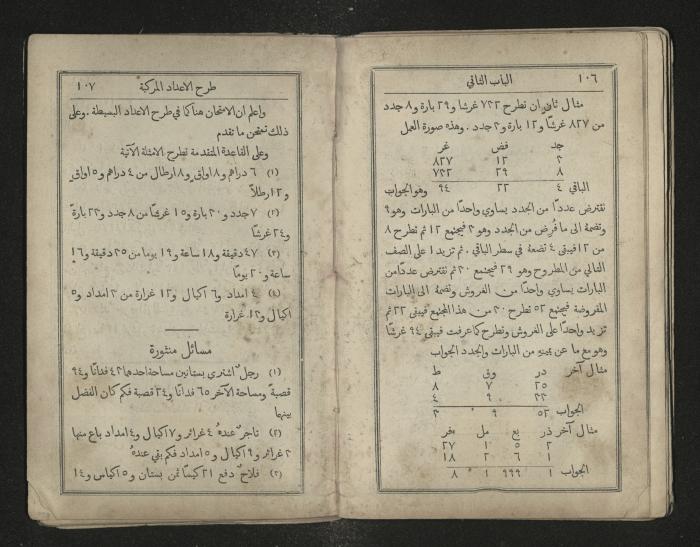 ١٠٦ الباب الثاني
مثال ثانٍ ان نطرح ٧٣٢ غرشًا و٢٩ بارة و٨ جدد
من ٨٢٧ غرشًا و١٢ بارة و٢ جدد . وهذه صورة العمل
جد فض غر
٣ ١٢ ٨٢٧
٨ ٢٩ ٧٣٢
الباقي ٤ ٢٢ ٩٤ وهو الجواب
نقترض عددًا من الجدد يساوي واحدًا من البارات وهو ٩
ونضمهُ الى ما فُرِض من الجدد وهو ٣ فيجتمع ١٢ ثم نطرح ٨
من ١٢ فيبقى ٤ نضعهُ في سطر الباقي . ثم نزيد ١ على الصف
التالي من المطروح وهو ٢٩ فيجتمع ٣٠ ثم نقترض عددًا من
البارات يساوي واحدًا من الغروش ونضمهُ الى البارات
المفروضة فيجتمع ٥٢ نطرح ٣٠ من هذا المجتمع فيبقى ٢٢ ثم
نزيد واحدًا على الغروش ونطرح كما عرفت فيبقى ٩٤ غرشًا
وهو مع ما عن يمينهِ من البارات والجدد الجواب
مثال آخر در وق ط
٢٥ ٧ ٨
٢٢ ٩ ٤
الجواب ٥٢ ٩ ٣
مثال آخر ذر بع مل فر
٢ ٥ ١ ٢٧
١ ٦ ٢ ١٨
الجواب ١ ٩٩٩ ١ ٨
طرح الاعداد المركبة ١٠٧
واعلم ان الامتحان هنا كما في طرح الاعداد البسيطة . وعلى
ذلك نمتحن ما تقدم
وعلى القاعدة المتقدمة نطرح الامثلة الآتية
(١) ٦ دراهم و٨ اواقٍ و٨ ارطال من ٤ دراهم و٥ اواقٍ
و١٢ رطلاً
(٢) ٧ جدد و٣٠ بارة و١٥ غرشًا من ٨ جدد و٢٢ بارة
و٢٤ غرشًا
(٣) ٤٧ دقيقة و١٨ ساعة و١٩ يومًا من ٣٥ دقيقة و١٦
ساعة و٢٠ يومًا
(٤) ٤ امداد و٦ اكيال و١٢ غرارة من ٣ امداد و٥
اكيال و١٣ غرارة
مسائل منثورة
(١) رجلٌ اشترى بستانين مساحة احدهما ٤٢ فدانًا و٩٤
قصبةً ومساحة الآخر ٦٥ فدانًا و٣٤ قصبة فكم كان الفضل
بينهما
(٢) تاجرٌ عندهُ ٤ غرائر و٧ اكيال و٤ امداد باع منها
٢ غرائر و٩ اكيال و٥ امداد فكم بقي عندهُ
(٣) فلاحٌ دفع ٢١ كيسًا ثمن بستان و٥ اكياس و١٤